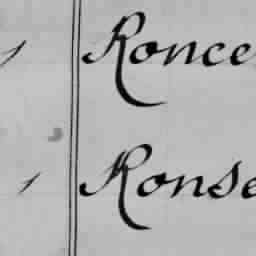 Ronce
Ronse